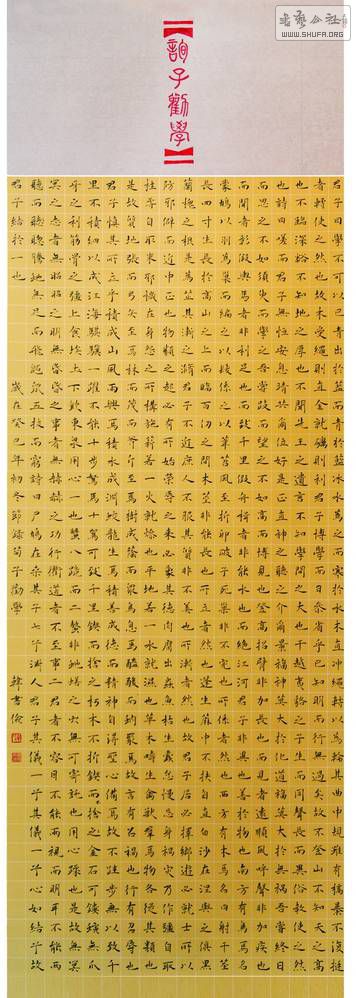 書藝公社
WWW.SHUFA.ORG
荀子勸學
君子曰學不可以已青取之於藍而青於藍冰水為之而寒於水木直中繩輮以為輪其曲中規雖有槁暴不復挺
者輮使之然也故木受繩則直金就礪則利君子博學而日參省乎己則知明而行無過矣故不登高山不知天之高
也不臨深谿不知地之厚也不聞先王之遺言不知學問之大也干越夷貉之子生而同聲長而異俗教使之然
也詩曰嗟爾君子無恆安息靖共爾位好是正直神之聽之介爾景福神莫大於化道福莫大於無禍吾嘗終日
而思之不如須臾之所學也吾嘗跂而望之不如登高之博見也登高而招臂非加長也而見者遠順風而呼聲非加疾也
而聞者彰假輿馬者非利足也而致千里假舟楫者非能水也而絕江河君子生非異也善假於物也南方有鳥名曰
蒙鳩以羽為巢而編之以髮繫之葦苕風至苕折卵破子死巢非不完也所繫者然也西方有木名曰射干莖
長四寸生於高山之上而臨百仞之淵木莖非能長也所立者然也蓬生麻中不扶自直白沙在涅與之俱黑
蘭槐之根是為芷其漸之滫君子不近庶人不服其質非不美也所漸者然也故君子居必擇鄉遊必就士所以
防邪僻而近中正也物類之起必有所始榮辱之來必象其德肉腐出蟲魚枯生蠹怠慢忘身禍災乃作強自取
柱柔自取束邪穢在身怨之所構施薪若一火就燥也平地若一水就濕也草木疇生禽獸群焉物各從其類也
是故質的張而弓矢至焉林木茂而斧斤至焉樹成蔭而眾鳥息焉醯酸而蚋聚焉故言有召禍也行有召辱也
君子慎其所立乎積土成山風雨興焉積水成淵蛟龍生焉積善成德而神明自得聖心備焉故不積跬步無以致千
里不積細流無以成江海騏驥一躍不能十步駑馬十駕功在不舍鍥而捨之朽木不折鍥而不捨金石可鏤螾無爪
牙之利筋骨之強上食埃土下飲黃泉用心一也蟹八跪而二螯非蛇蟺之穴無可寄託者用心躁也是故無冥
冥之志者無昭昭之明無惛惛之事者無赫赫之功行衢道者不至事二君者不容目不能兩視而明耳不能兩
聽而聰螣蛇無足而飛鼫鼠五技而窮詩曰尸鳩在桑其子七兮淑人君子其儀一兮其儀一兮心如結兮故
君子結於一也 歲在癸巳年初冬節錄荀子勸學 韓書倫